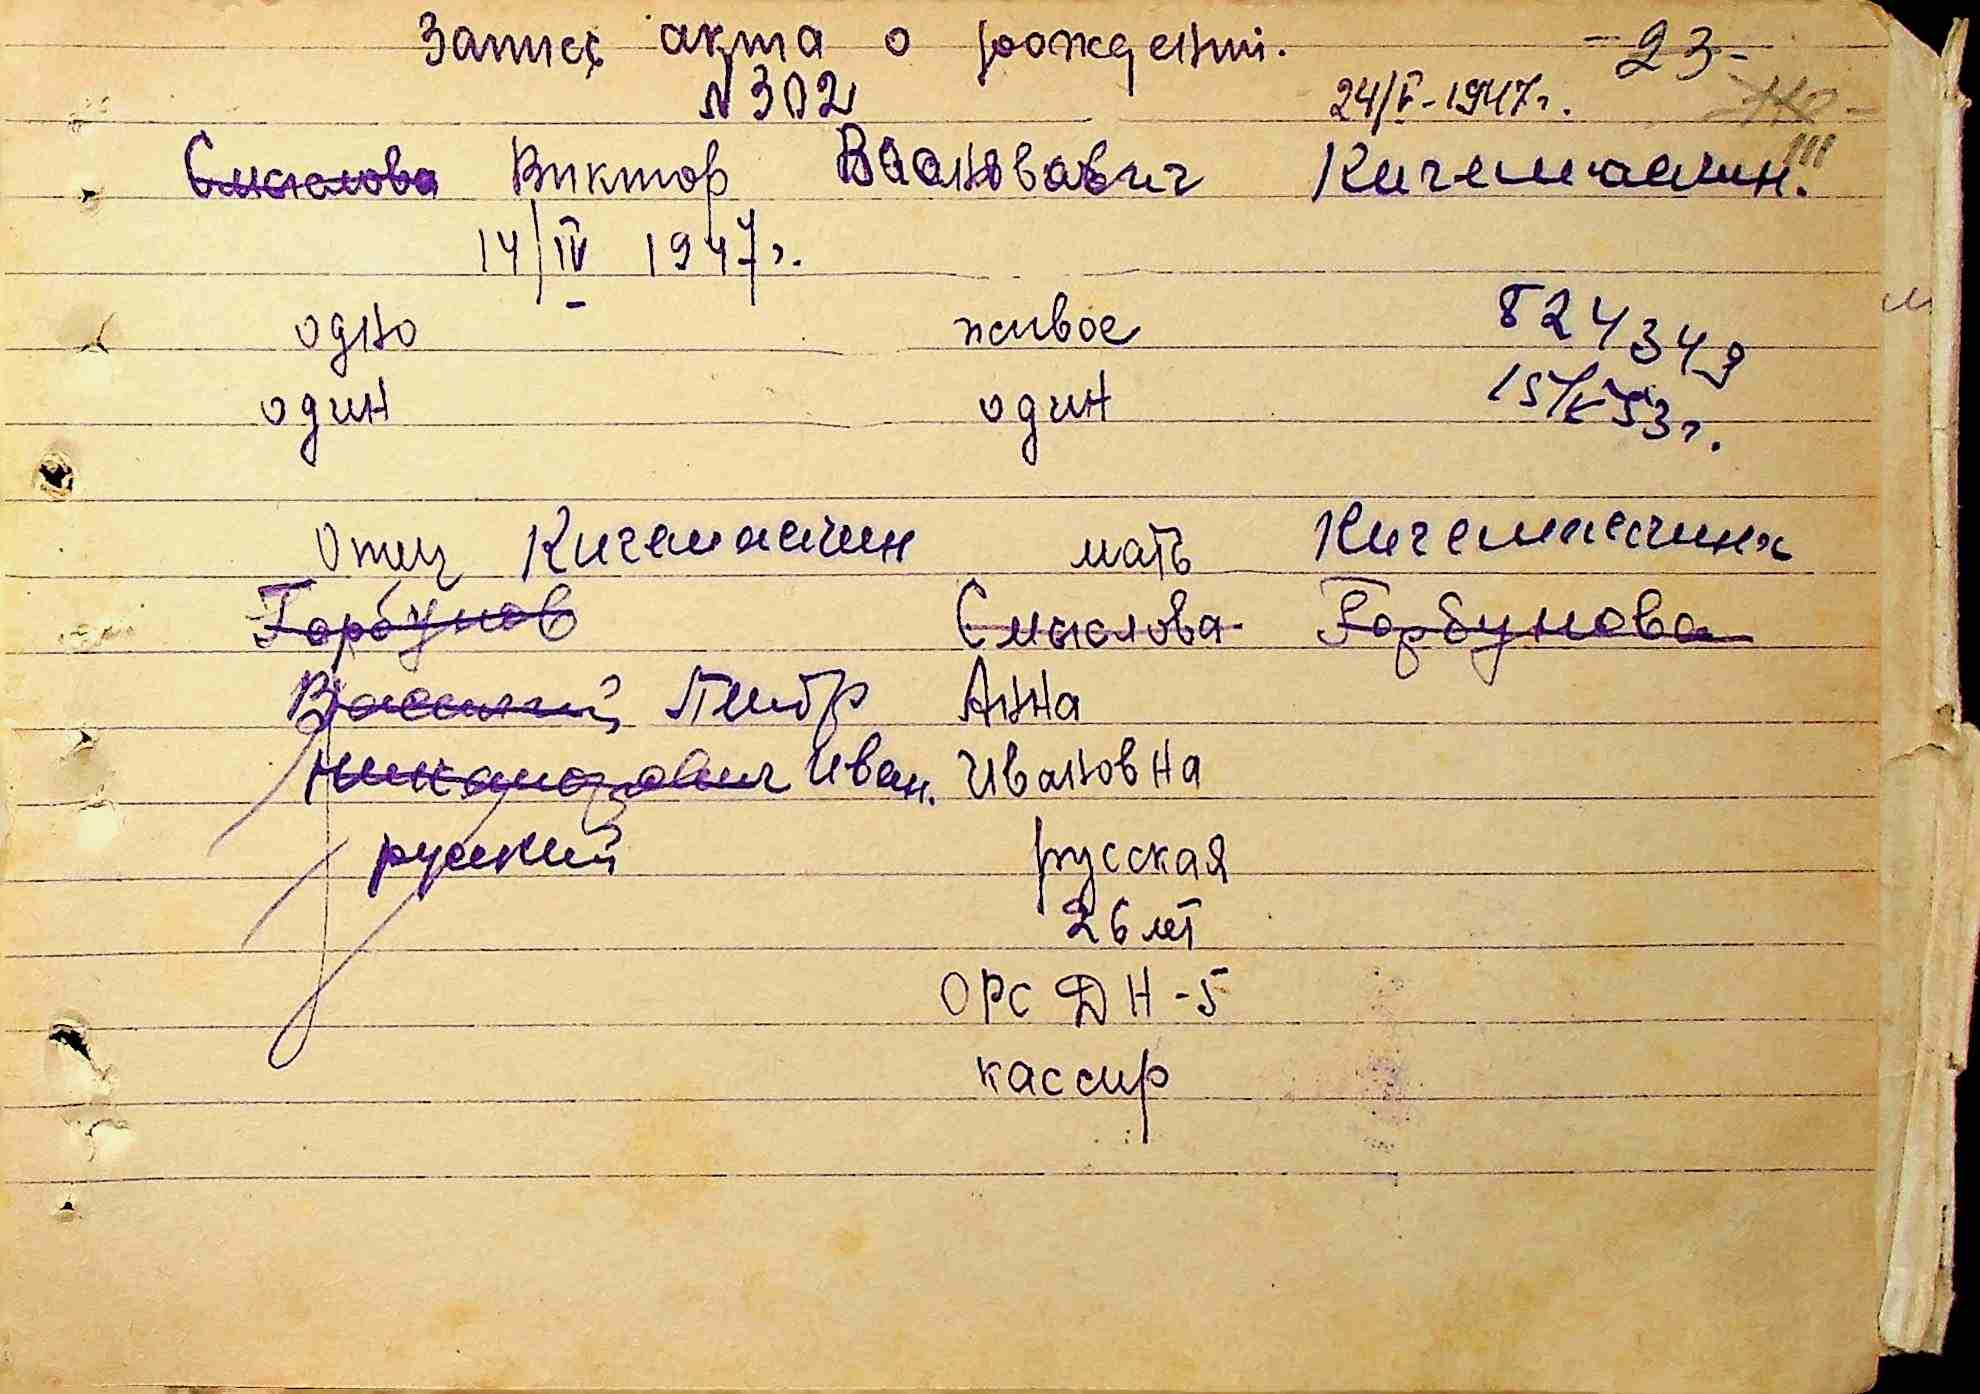 Запись акта о рождении. -23-
№ 302 24/V-1947г.
Смыслова Виктор Кичемасчин.
14/IV 1947г.
одно живое 824349
один один 15/V 53г.
Отец Кичемасчин мать Кичемасчина
Горбунов Смыслова Горбунова
Василий Петр Анна
Иван. Ивановна
русский русская
26 лет
ОРС ДН-5
кассир